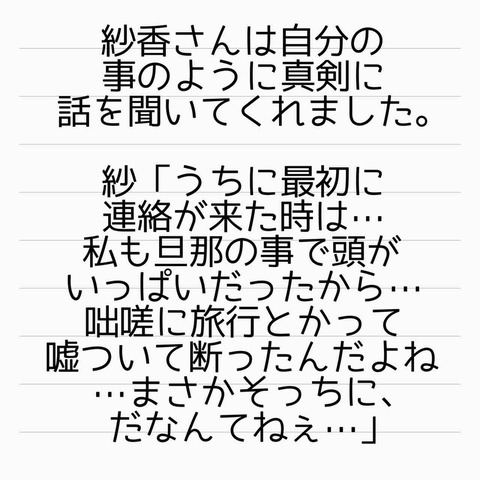 紗香さんは自分の
事のように真剣に
話を聞いてくれました。
紗「うちに最初に
連絡が来た時は…
私も旦那の事で頭が
いっぱいだったから…
咄嗟に旅行とかって
嘘ついて断ったんだよね
…まさかそっちに、
だなんてねぇ…」